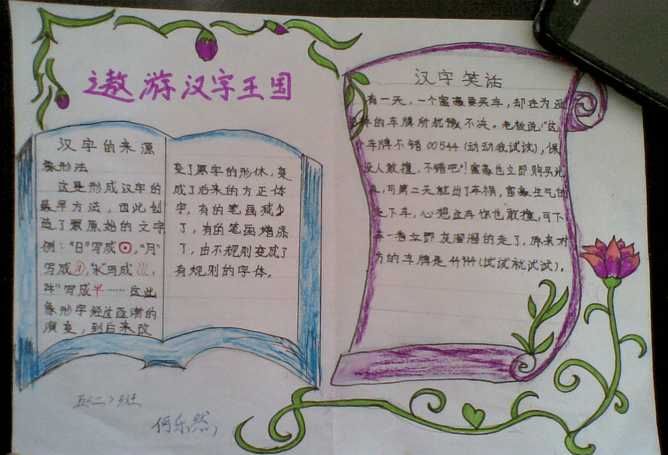 遨游汉字王国
汉字的来源
象形法
这是形成汉字的
最早方法，因此创
造了最原始的文字
例："日"写成⊙，"月"
写成，"水"写成
写成……这些
象形字经过逐渐的
演变，到后来改
变了原字的形休，变
成了后来的方正体
字，有的笔画减少
了，有的笔画增添
了，由不规则变成了
有规则的字体。
五〈二〉班
何乐然
汉字笑话
有一天，一个富豪要买车，却在为
车的车牌所犹豫不决。老板说："这
车牌不错00544（动动我试试），保
没人敢撞，不错吧！"富豪也立即购买
，可第二天就出了车祸，富豪生气的
走下车，心想这车你也敢撞，可下
一看立即灰溜溜的走了，原来对
方的车牌是44944（试试就试试）。